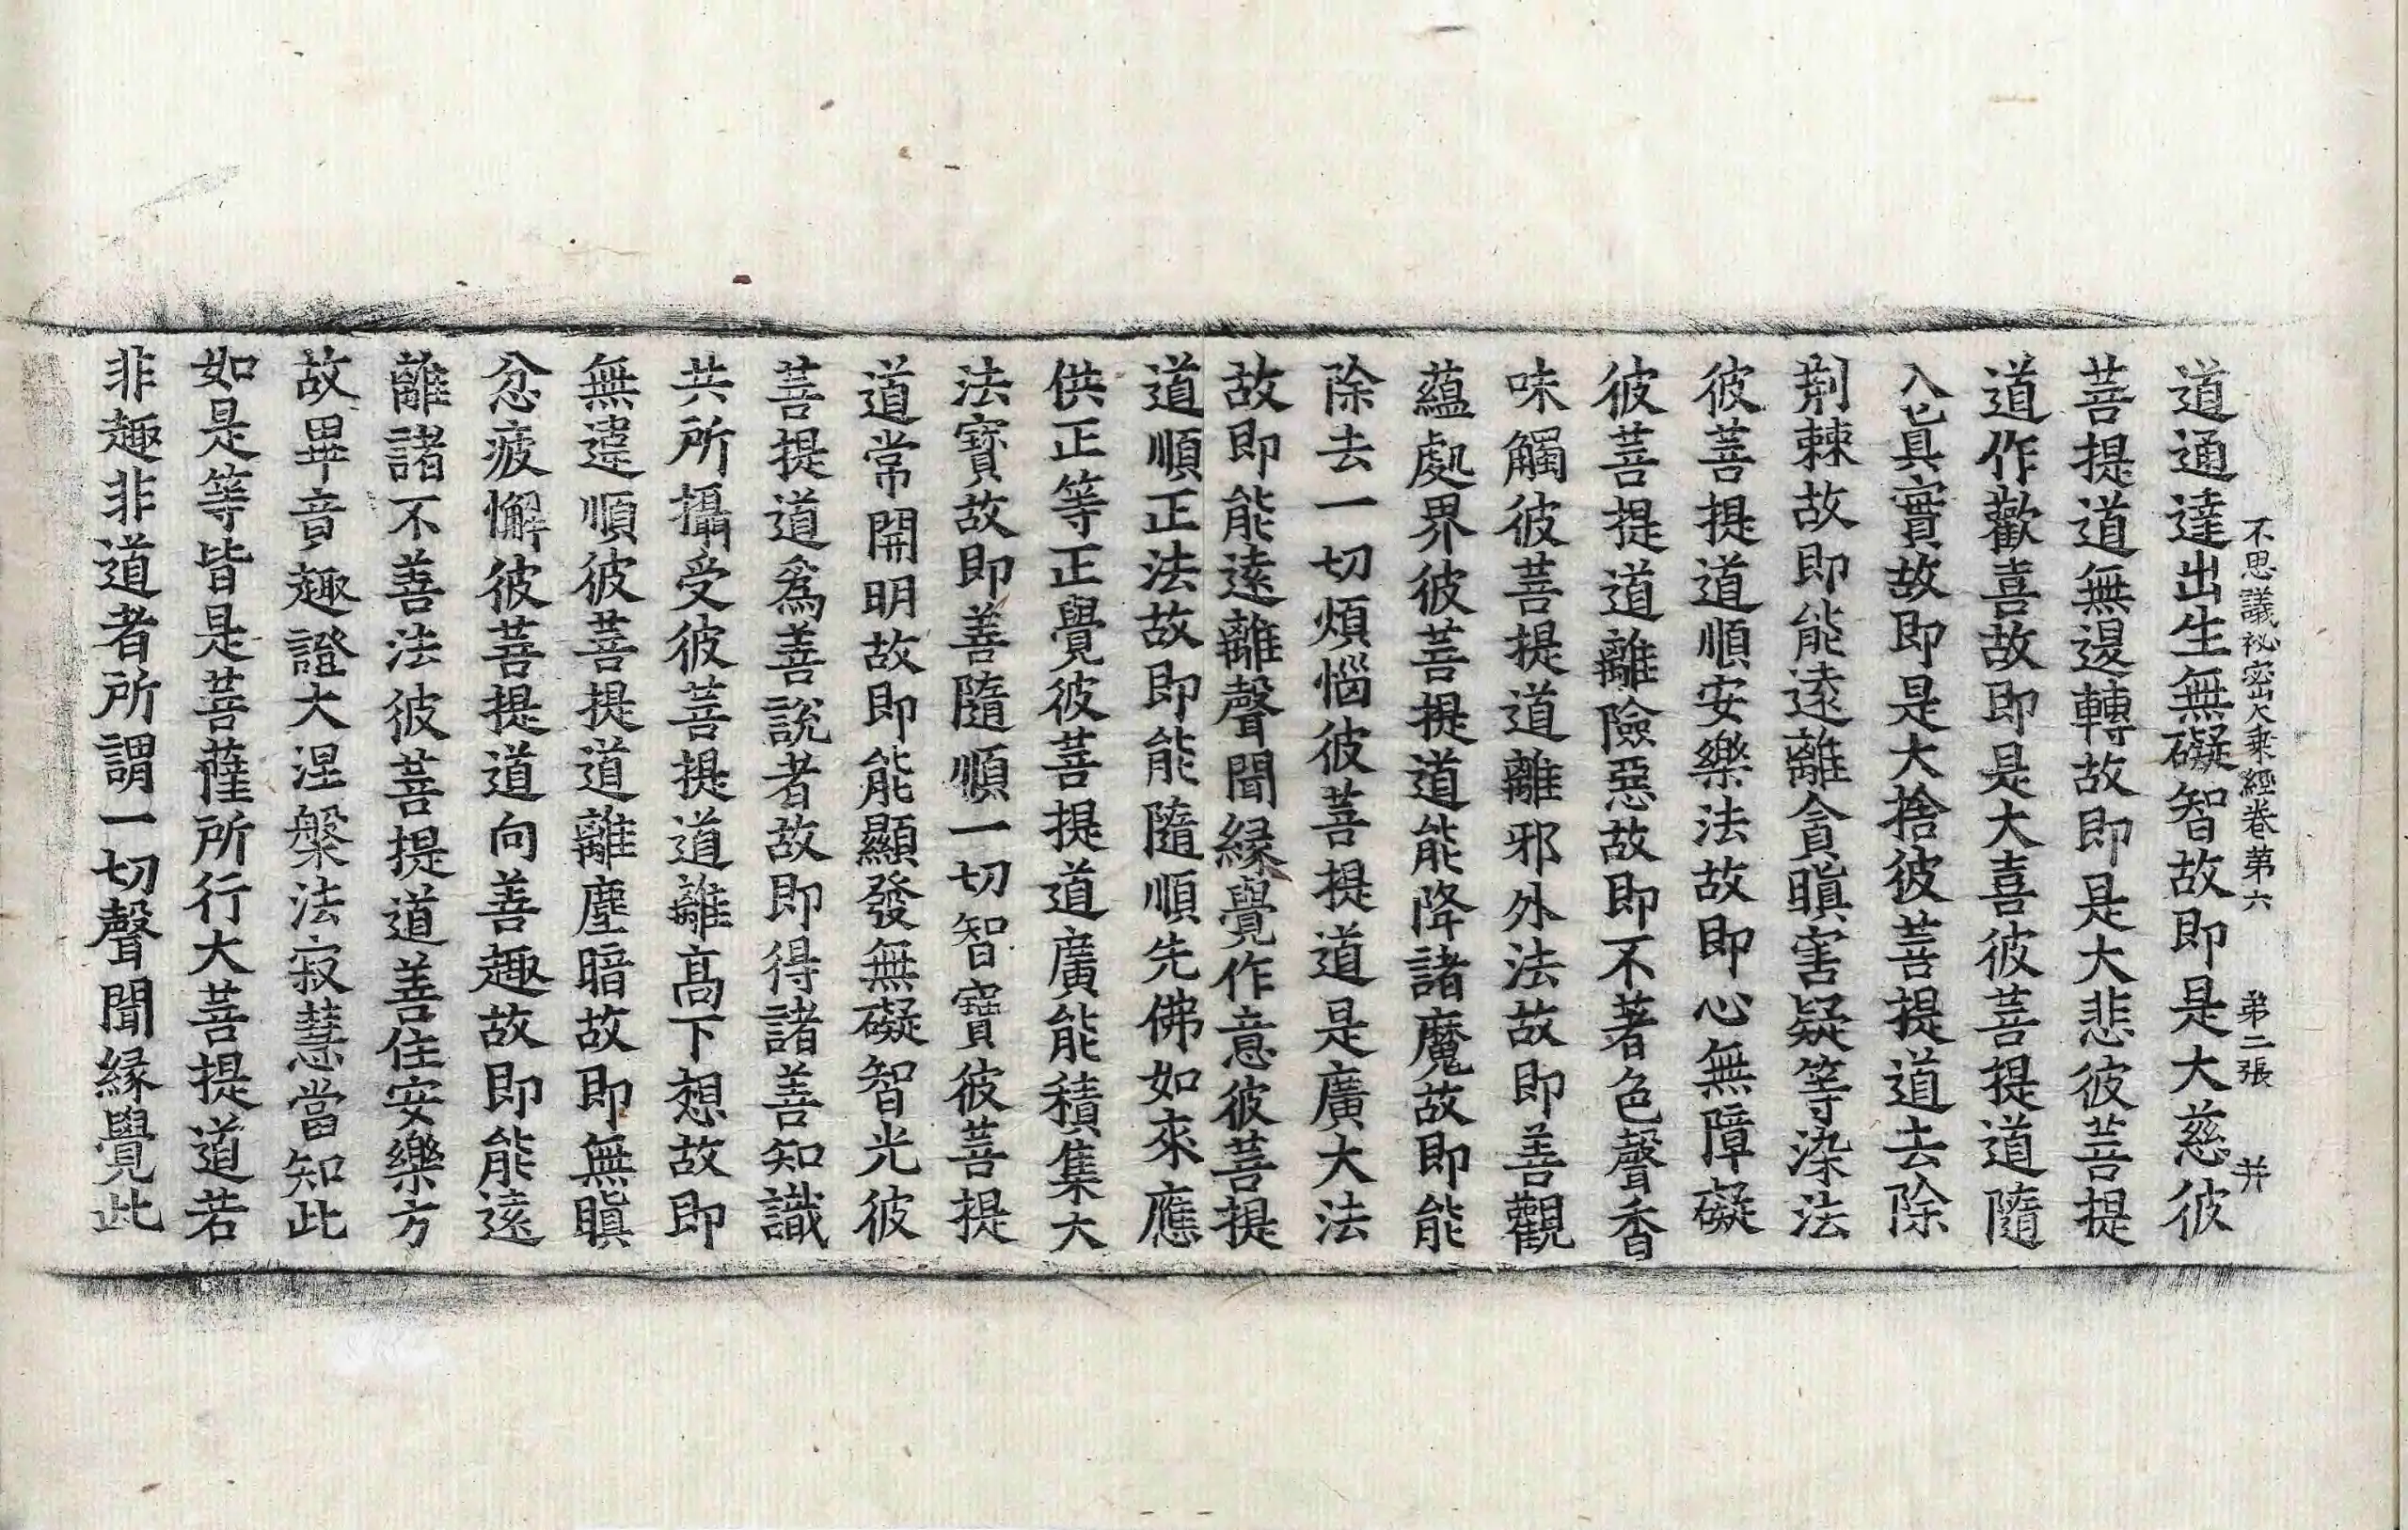 不思議祕密大乘經卷第六 弟二張 并
道通達出生無礙智故即是大慈彼
菩提道無邊轉故即是大悲彼菩提
道作歡喜故即是大喜彼菩提道隨
入已眞實故即是大捨彼菩提道去除
荆棘故即能遠離貪瞋害疑等染法
彼菩提道順安樂法故即心無障礙
彼菩提道離險惡故即不著色聲香
味觸彼菩提道離邪外法故即善觀
蘊處界彼菩提道能降諸魔故即能
除去一切煩惱彼菩提道是廣大法
故即能遠離聲聞緣覺作意彼菩提
道順正法故即能隨順先佛如來應
供正等正覺彼菩提道廣能積集大
法寶故即善隨順一切智寶彼菩提
道常開明故即能顯發無礙智光彼
菩提道爲善說者故即得諸善知識
共所攝受彼菩提道離高下想故即
無違順彼菩提道離塵暗故即無瞋
忿疲懈彼菩提道向善趣故即能遠
離諸不善法彼菩提道善住安樂方
故畢竟趣證大涅槃法寂慧當知此
如是等皆是菩薩所行大菩提道若
非趣非道者所謂一切聲聞緣覺此